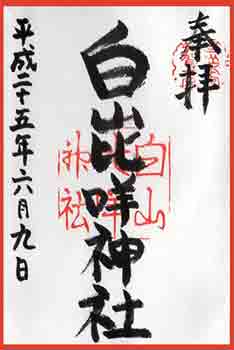 奉拝
白山比咩神社
平成二十五年六月九日
白山
神社